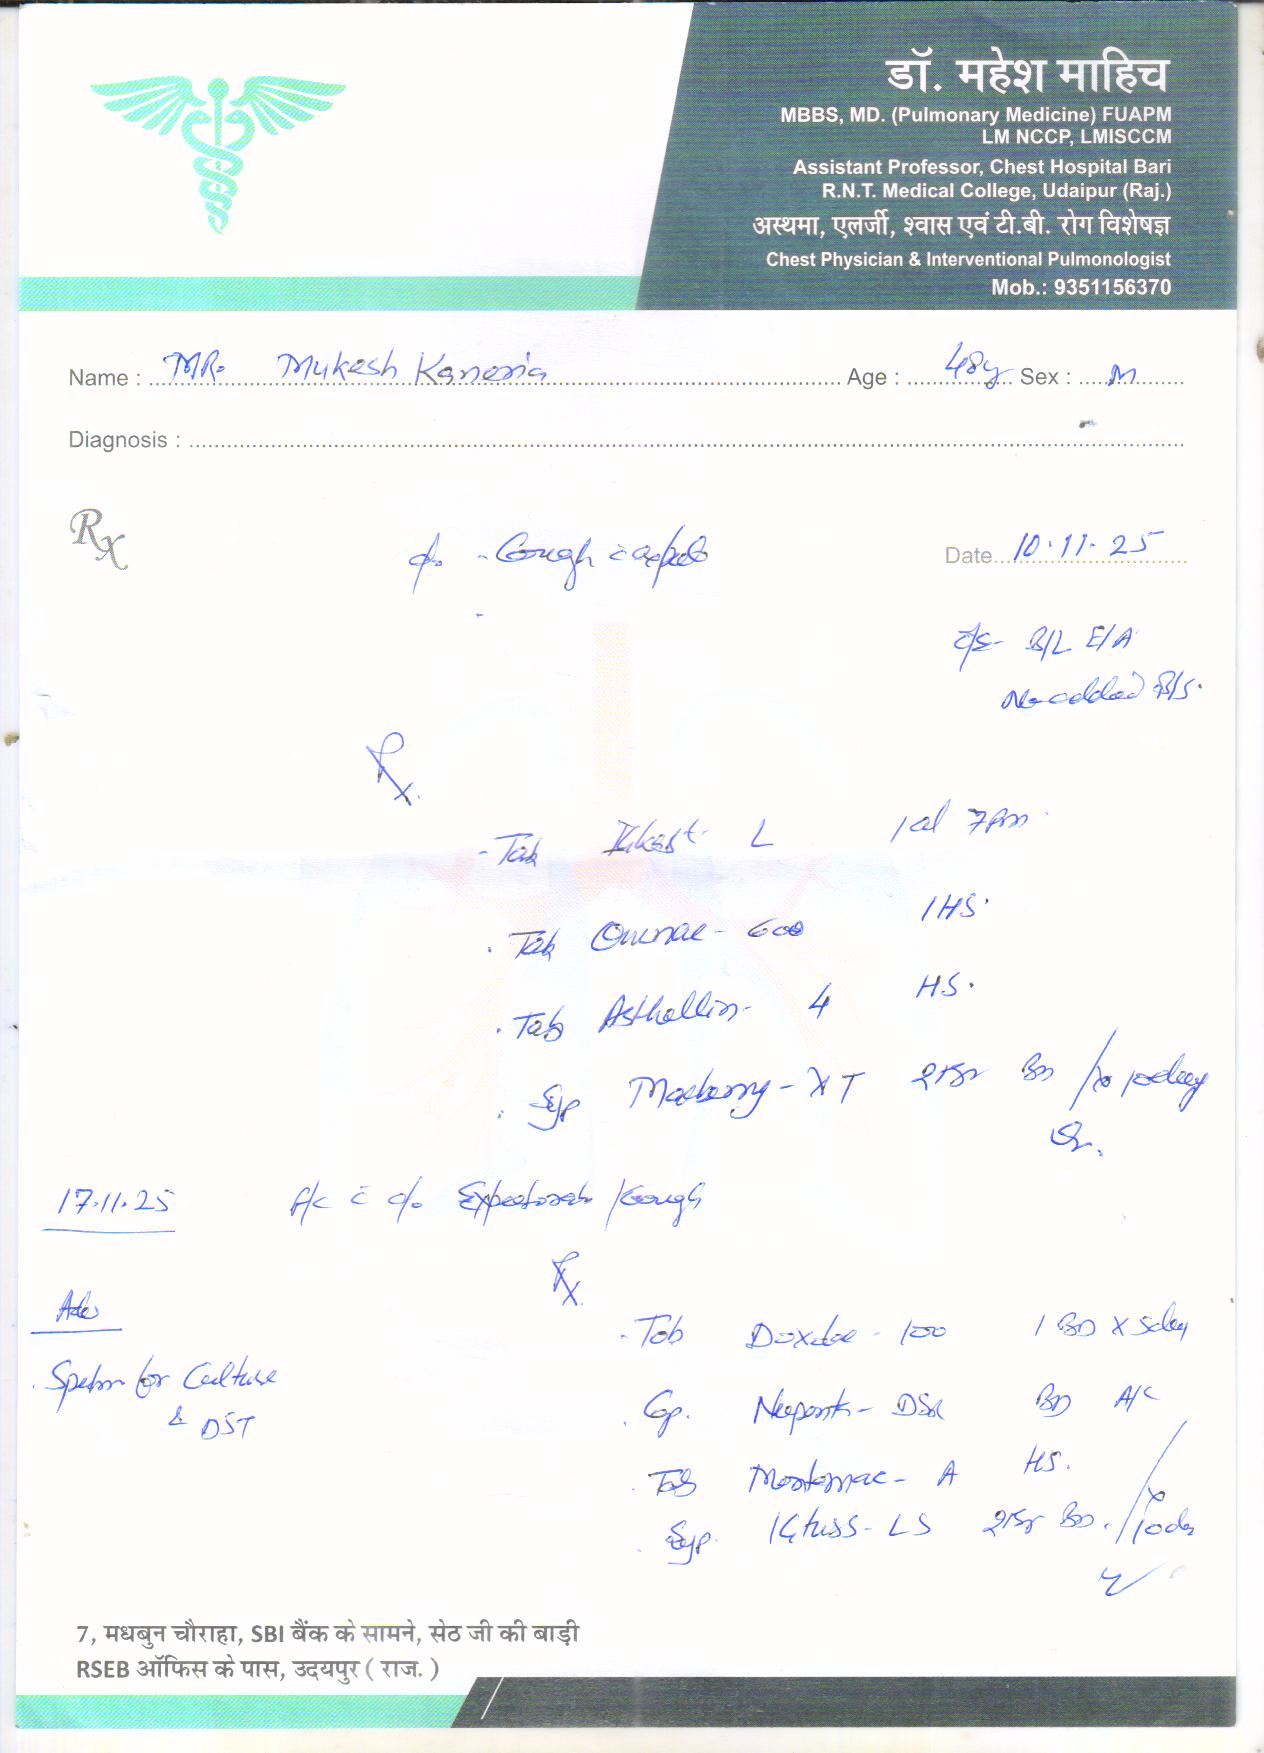 डॉ. महेश माहिच
MBBS, MD. (Pulmonary Medicine) FUAPM
LM NCCP, LMISCCM
Assistant Professor, Chest Hospital Bari
R.N.T. Medical College, Udaipur (Raj.)
अस्थमा, एलर्जी, श्वास एवं टी.बी. रोग विशेषज्ञ
Chest Physician & Interventional Pulmonologist
Mob.: 9351156370
Name : MR. Mukesh Kaneria Age : 48y Sex : M
Diagnosis :
Rx
c/o - Cough c
Date 10.11.25
B/L E/A
No added
Rx
- Tab L 1 7pm
. Tab 600 1 HS.
. Tab Asthallin - 4 HS.
. Syp - XT BD / x 10day
17.11.25 c c/o / Cough
Rx
Adv
. for Culture
& DST
- Tab - 100 1 BD x 5day
. Cap. - DSR BD A/C
. Tab Montemac - A HS.
. Syp. - LS BD.
7, मधबुन चौराहा, SBI बैंक के सामने, सेठ जी की बाड़ी
RSEB ऑफिस के पास, उदयपुर ( राज. )